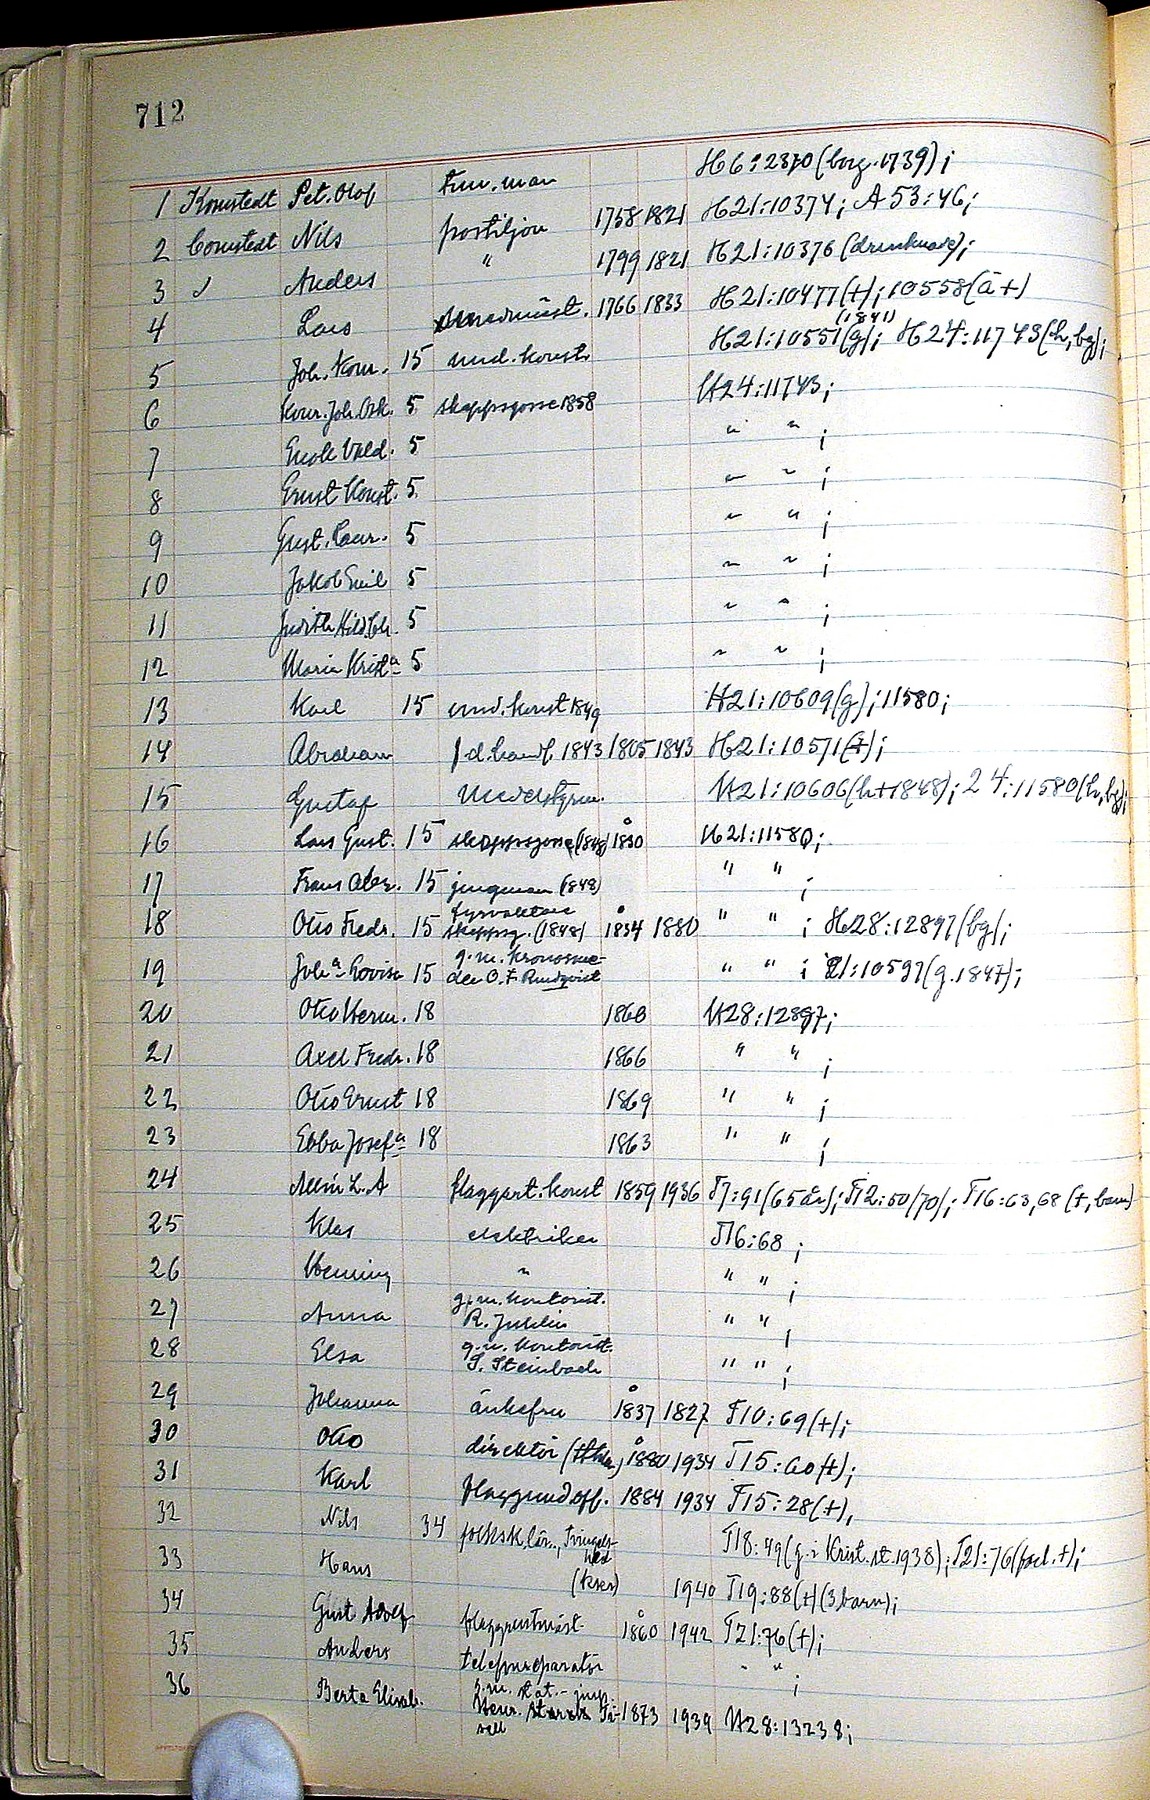 712
1 Konstedt Pet. Olof Tim.man H6:2370 (borg.1739);
2 Cornstedt Nils postiljon 1758 1821 H21:10374; A53:46;
3 Anders " 1799 1821 H21:10376 (drunknade);
4 Lars 1766 1833 H21:10477(+); 10558(ä+)
5 Joh. Konr. 15 und.konst. H21:10551(g)(1841); H24:11743(h,bg);
6 Konr. Joh. Osk. 5 skeppsgosse 1858 H24:11743;
7 Enok Vald. 5 " " ;
8 Ernst Konst. 5 " " ;
9 Gust. Laur. 5 " " ;
10 Jakob Emil 5 " " ;
11 Judith 5 " " ;
12 Maria Krist:a 5 " " ;
13 Karl 15 und.konst 1849 H21:10609(g); 11580;
14 Abraham f d. 1843 1805 1843 H21:10571(+);
15 Gustaf Medelstyrm. H21:10606(h+1848); 24:11580(h,bg);
16 Lars Gust. 15 skeppsgosse (1848) 1830 H21:11580;
17 Frans Alex. 15 jungman (1848) " " ;
18 Otto Fredr. 15 fyrvaktare skeppsg. (1848) 1834 1880 " " ; H28:12897(bg);
19 Joh:a Lovisa 15 g.m. kronosme-
den O.F. Rundqvist " " ; 21:10597(g.1847);
20 Otto Herm. 18 1860 H28:12897;
21 Axel Fredr. 18 1866 " " ;
22 Otto Ernst 18 1869 " " ;
23 Ebba Josef:a 18 1863 " " ;
24 L.A flaggart.konst 1859 1936 T7:91(65 år); T12:50(70); T16:63,68(+, barn)
25 Klas elektriker T16:68 ;
26 Henning " " " ;
27 Anna g.m. kontorist.
R. Juhlin " " ;
28 Elsa g.m. kontorist.
S. Steinbach " " ;
29 Johanna änkefru 1837 1827 T10:69(+);
30 Otto direktör 1880 1934 T15:60(+);
31 Karl flaggundoff. 1884 1934 T15:28(+),
32 Nils 34 folksk.lär., Tvings-
hed T18:49(g. i Krist.st.1938); T21:76(fad.+);
33 Hans 1940 T19:88(+)(3 barn);
34 Gust Adolf flaggrustmäst. 1860 1942 T21:76(+);
35 Anders telefonreparatör " " ;
36 Berta Elisab. g.m. stat.- insp. 1873 1939 H28:13238;